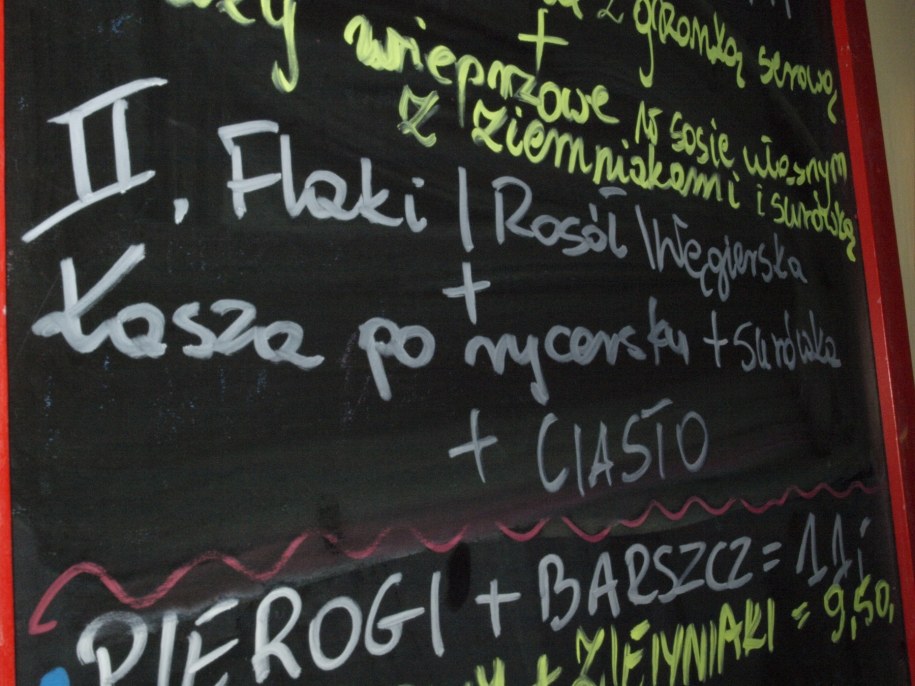 z gronką serową
+
wieprzowe w sosie własnym
z ziemniakami i surówką
II. Flaki / Rosół / Węgierska
+
Kasza po rycersku + surówka
+ CIASTO
PIEROGI + BARSZCZ = 11;
+ ZIEMNIAKI = 9,50,